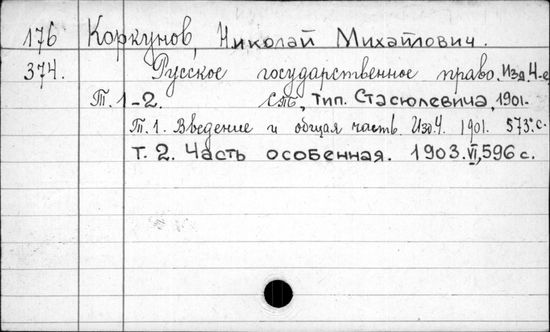 176 Коркунов, Николай Михайлович.
374. Русское государственное право. Изд. 4-е
Т. 1-2. СПб, тип. Стасюлевича, 1901-
Т. 1. Введение и общая часть. Изд. 4. 1901. 573 с.
Т. 2. Часть особенная. 1903. VI, 596 с.